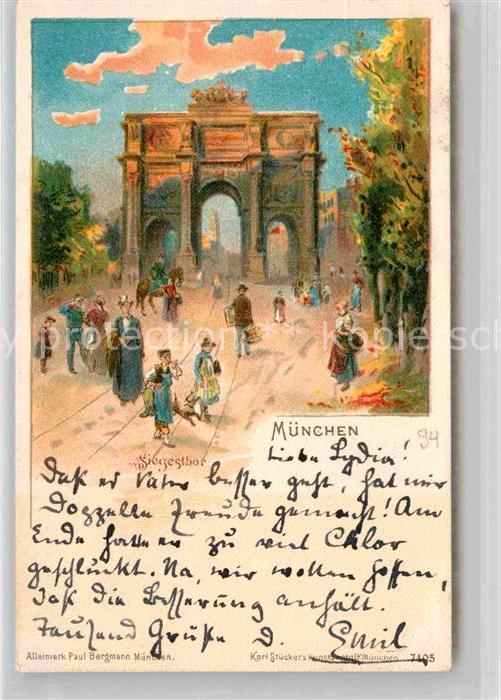 MÜNCHEN
94
Siegesthor
Liebe Lydia!
Daß es Vater besser geht, hat mir
Doppelte Freude gemacht! Am
Ende hatte er zu viel Chlor
geschluckt. Na, wir wollen hoffen,
daß die Besserung anhält.
Tausend Grüße D. Emil
Alleinverk. Paul Bergmann München.
Karl Stücker's Kunstanstalt München. 7105